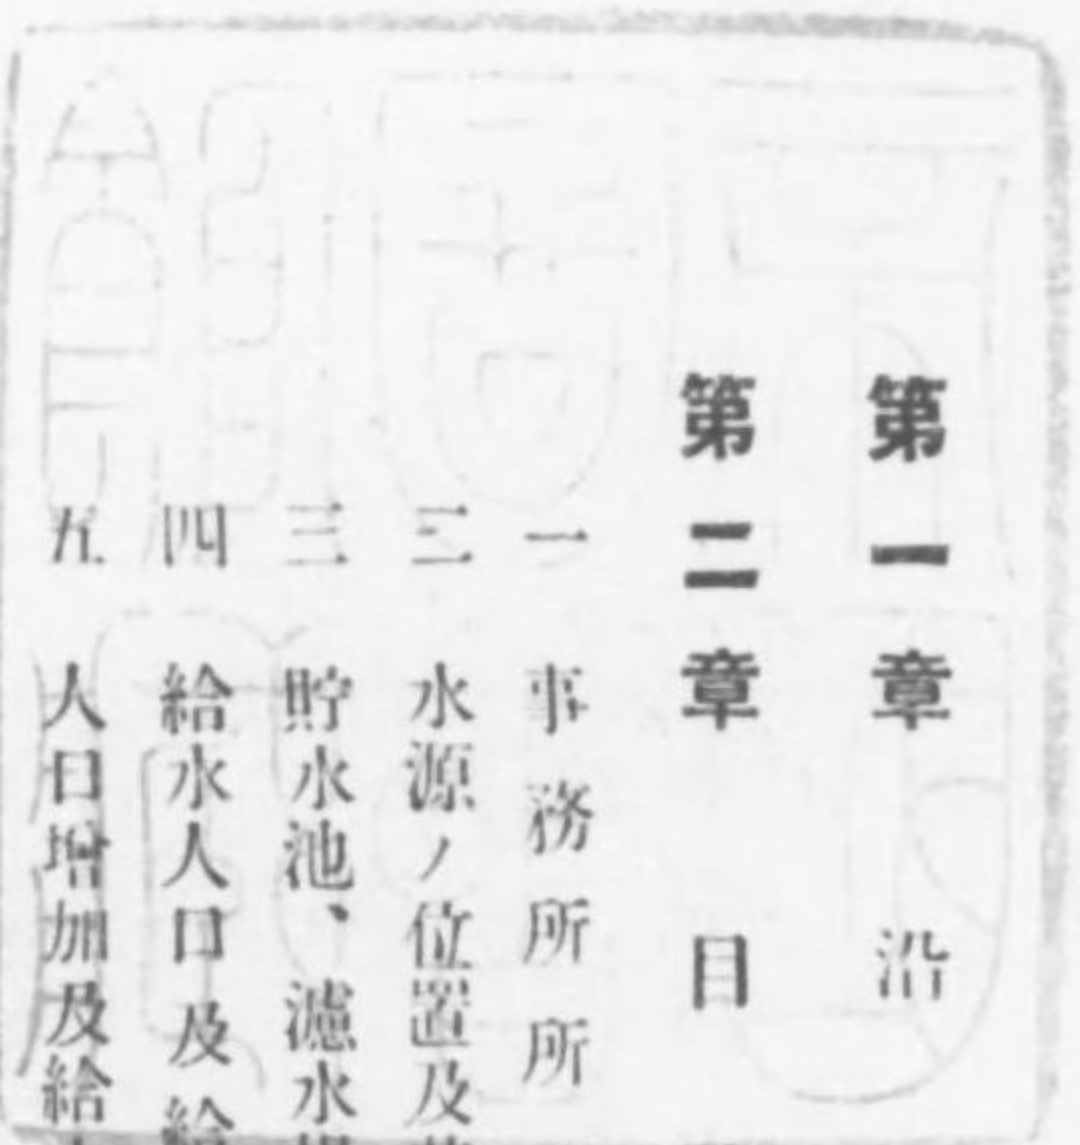 第一章 沿
第二章 目
一 事務所所
二 水源ノ位置及
三 貯水池、濾水
四 給水人口及給
五 人口增加及給